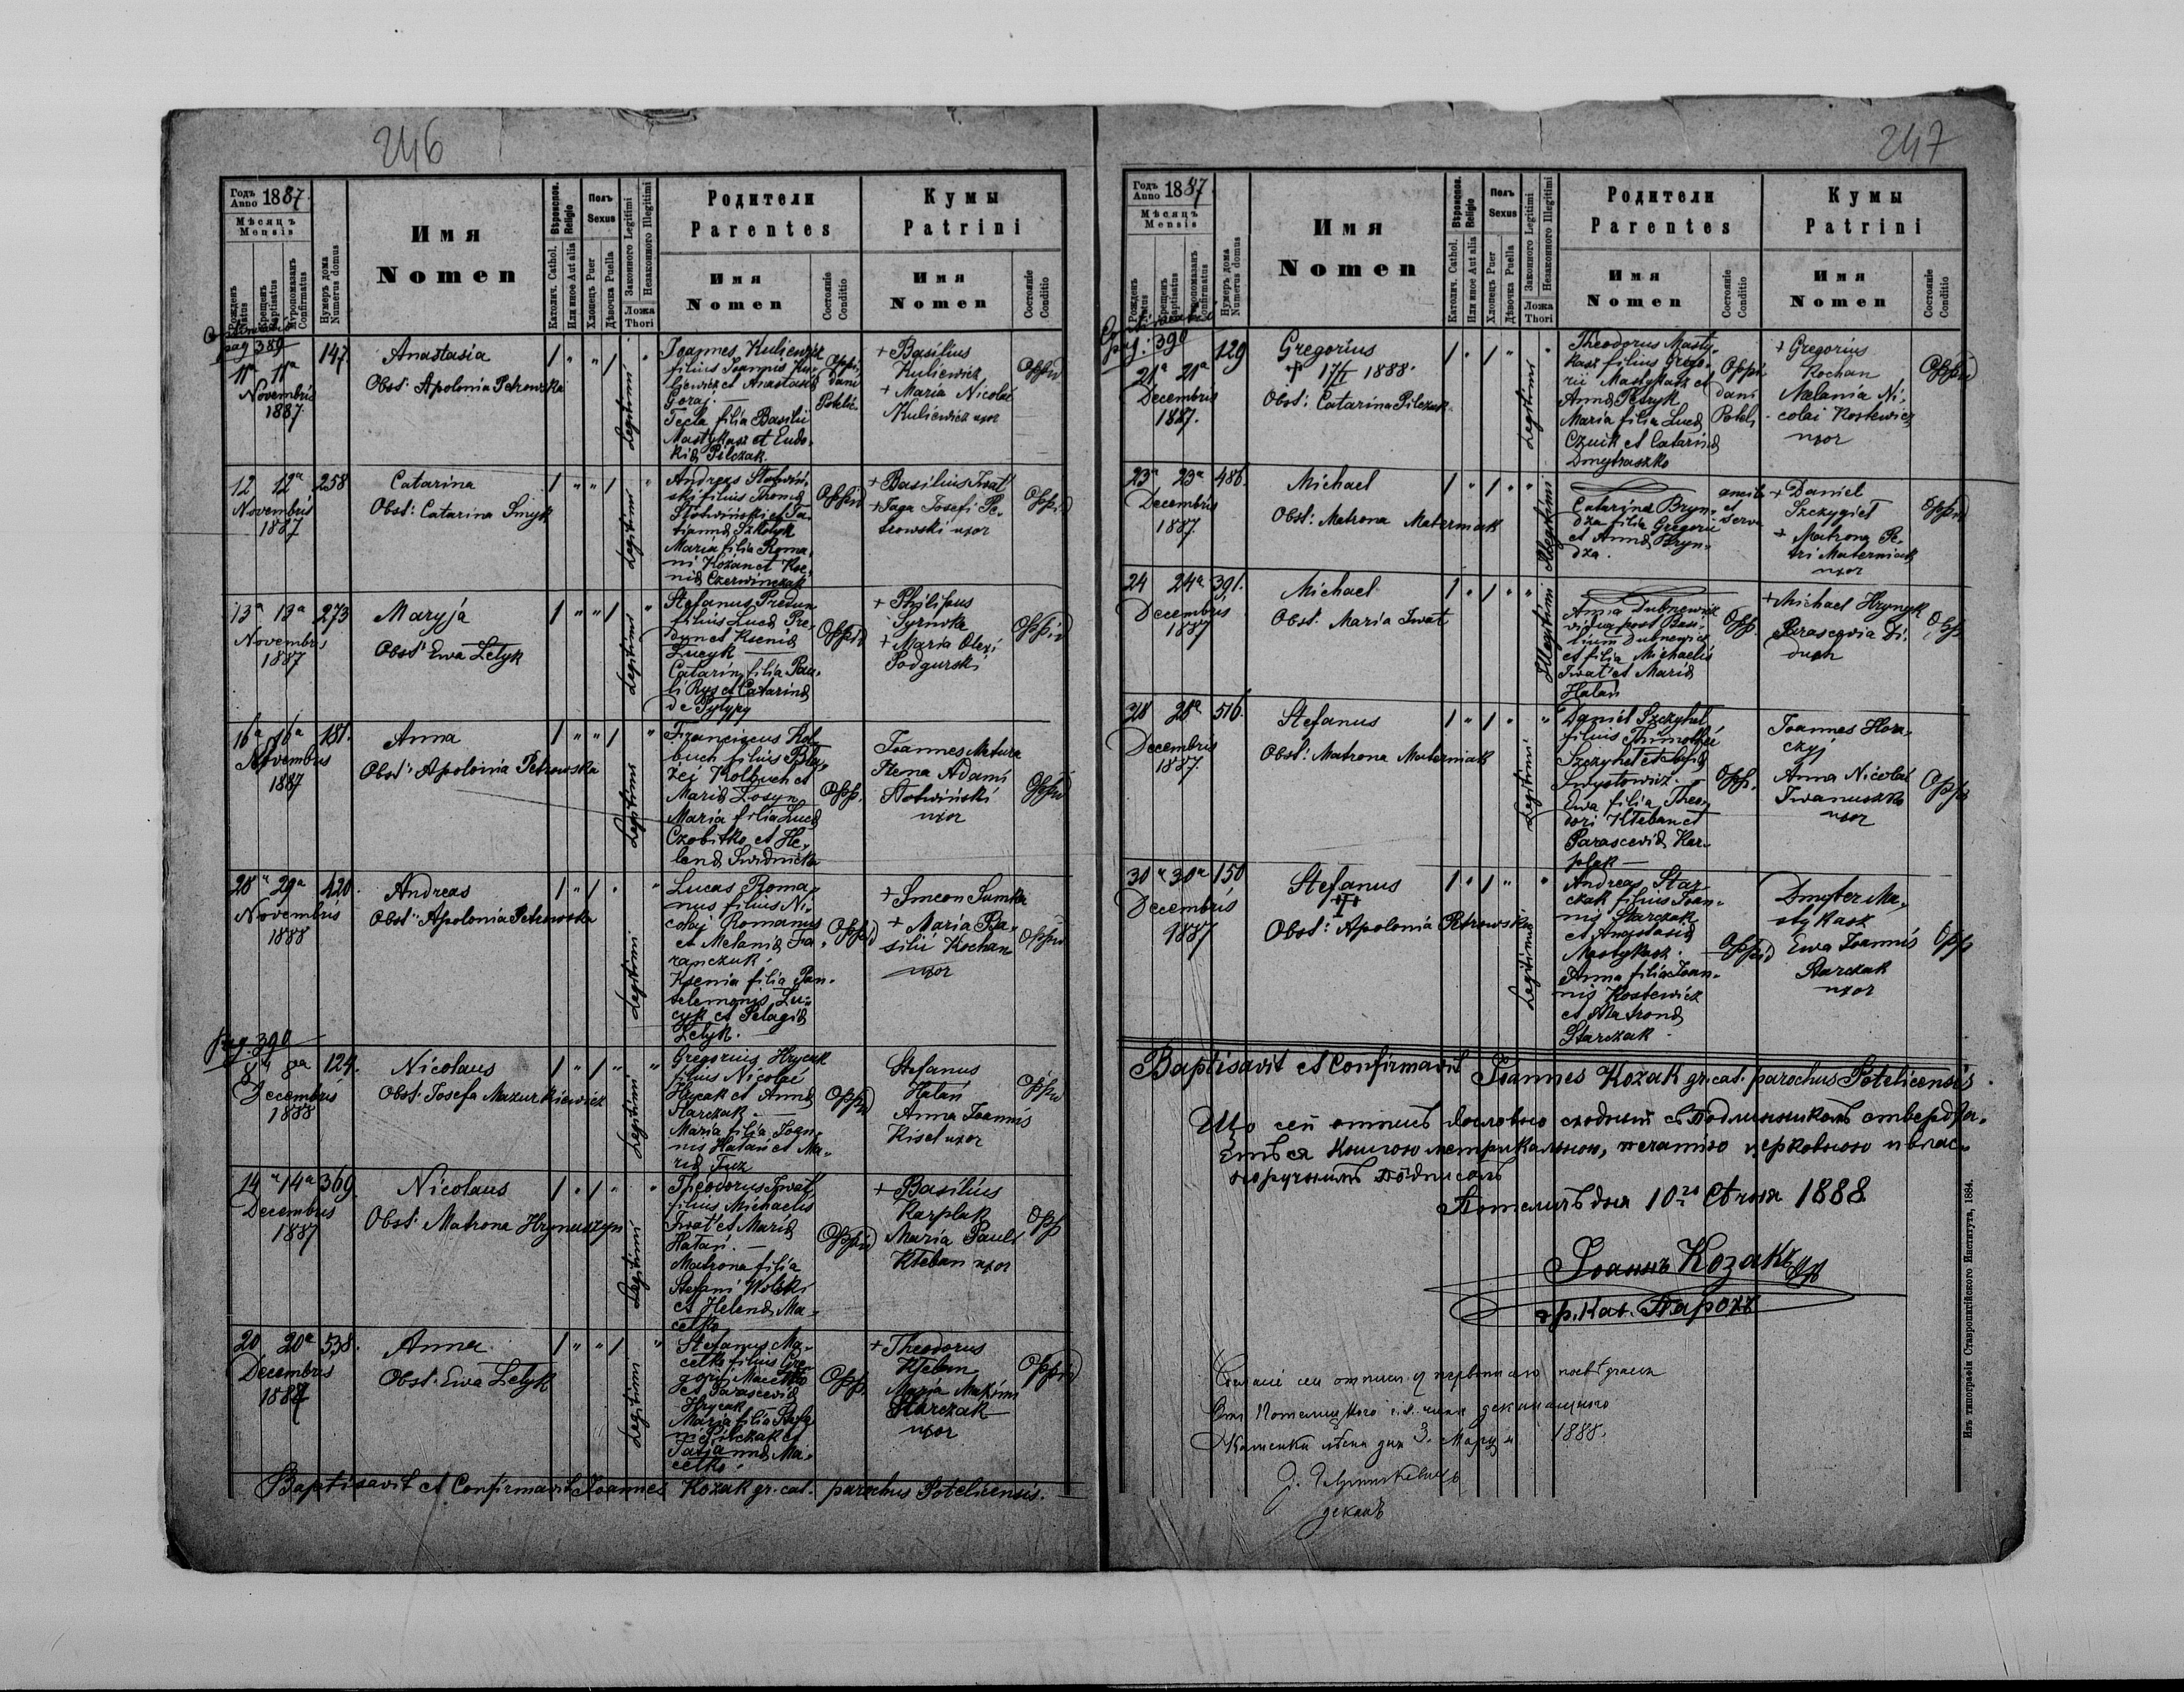 246
Годъ Anno 1887.
Мѣсяцъ
Mensis
Рожденъ Natus
Крещенъ Baptisatus
Мѵропомазанъ Confirmatus
Нумеръ дома Numerus domus
Имя
Nomen
Вѣроиспов. Religio
Католич. Cathol.
Или иное Aut alia
Полъ
Sexus
Хлопецъ Puer
Дѣвочка Puella
Законного Legitimi
Незаконного Illegitimi
Ложа
Thori
Родители
Parentes
Имя
Nomen
Состояніе
Conditio
Кумы
Patrini
Имя
Nomen
Состояніе
Conditio
pag 389
11ª 11ª 147.
Novembris
1887.
Anastasia
Obst: Apolonia Petrowska
1 " " 1
Legitimi
Joannes Kuliewicz
filius Joannis Ku-
liewicz et Anastasiæ
Goraj. —
Tecla filia Basilii
Mastykasz et Eudo-
kiæ Pilczak.
Oppi-
dani
Potelic.
+ Basilius
Kuliewicz
+ Maria Nicolai
Kuliewicz uxor
Oppid
12 12ª 258
Novembris
1887
Catarina
Obst: Catarina Smyk
1 " " 1
Legitimi
Andreas Słotwiń-
ski filius Thomæ
Słotwiński et Ta-
tiannæ Szkolyk
Maria filia Roma-
ni Kozan et Kse-
niæ Czerwinczak
Oppid
+ Basilius Iwat
+ Jaga Josefi Pe-
trowski uxor
Oppid
13ª 13ª 273
Novembris
1887
Maryja
Obst: Ewa Zelyk
1 " " 1
Legitimi
Stefanus Predun
filius Lucæ Pre-
dun et Kseniæ
Lucyk —
Catarina filia Pau-
li Rys et Catarinæ
de Pylypy
Oppid
+ Philipus
Syrwka
+ Maria Olexi
Podgurski
Oppid
16ª 16ª 181.
Novembris
1887
Anna
Obst: Apolonia Petrowska
1 " " 1
Legitimi
Franciscus Kol-
buch filius Bła-
żej Kolbuch et
Mariæ Łosyn
Maria filia Lucæ
Czobitko et He-
lenæ Swidnicka
Opp.
Joannes Matura
Ilena Adami
Słotwiński
uxor
Oppid
28ª 29ª 420.
Novembris
1888
Andreas
Obst: Apolonia Petrowska
1 " 1 "
Legitimi
Lucas Roma-
nus filius Ni-
colaj Romanus
et Melaniæ Ta-
ranczuk.
Ksenia filia Pan-
telemonis Lu-
cyk et Pelagiæ
Zelyk.
Oppid
+ Simeon Sumka
+ Maria Ba-
silii Kochan
uxor
Oppid
pag. 390
8ª 8ª 124.
Decembris
1888
Nicolaus
Obst: Josefa Mazurkiewicz
1 " 1 "
Legitimi
Gregorius Hrycak
filius Nicolai
Hrycak et Annæ
Starczak. —
Maria filia Joan-
nis Hałań et Ma-
riæ Fuz
Oppid
Stefanus
Hałań
Anna Joannis
Kisel uxor
Oppid
14ª 14ª 369.
Decembris
1887
Nicolaus
Obst: Matrona Hrynuszyn
1 " 1 "
Legitimi
Theodorus Iwat
filius Michaelis
Iwat et Mariæ
Hałań. —
Matrona filia
Stefani Wolski
et Helenæ Ma-
celko
Oppid
+ Basilius
Karplak
Maria Pauli
Kłeban uxor
Opp
20 20ª 538.
Decembris
1887
Anna
Obst: Ewa Zelyk
1 " " 1
Legitimi
Stefanus Ma-
celko filius Gre-
gorii Macelko
et Parasceviæ
Hrycak
Maria filia
Pilczak et
Tatjannæ Ma-
celko.
Opp.
+ Theodorus
Kłeban
Maria Maksimi
Starczak
uxor
Oppid
Baptisavit et Confirmavit Joannes Kozak gr. cat. parochus Potelicensis. —
247
Годъ Anno 1887.
Мѣсяцъ
Mensis
Рожденъ Natus
Крещенъ Baptisatus
Мѵропомазанъ Confirmatus
Нумеръ дома Numerus domus
Имя
Nomen
Вѣроиспов. Religio
Католич. Cathol.
Или иное Aut alia
Полъ
Sexus
Хлопецъ Puer
Дѣвочка Puella
Законного Legitimi
Незаконного Illegitimi
Ложа
Thori
Родители
Parentes
Имя
Nomen
Состояніе
Conditio
Кумы
Patrini
Имя
Nomen
Состояніе
Conditio
pag: 390
21ª 21ª 129
Decembris
1887.
Gregorius
1888.
Obst: Catarina Pilczak.
1 " 1 "
Legitimi
Theodorus Masty-
kasz filius Grego-
rii Mastykasz et
Annæ Petryk
Maria filia Lucæ
Czuik et Catarinæ
Dmytraszko
Oppi-
dani
Potel.
+ Gregorius
Kochan
Melania Ni-
colai Kostewicz
uxor
Oppid
23ª 23ª 486.
Decembris
1887.
Michael
Obst: Matrona Materniak
1 " 1 "
Illegitimi
Catarina Bryn-
dza filia Gregorii
et Annæ Bryn-
dza.
+ Daniel
Szczygieł
+ Matrona Pe-
tri Materniak
uxor
Oppid
24 24ª 391.
Decembris
1887
Michael
Obst: Maria Iwat
1 " 1 "
Illegitimi
Anna Dubnewicz
vidua post Basi-
lium Dubnewicz
et filia Michaelis
Iwat et Mariæ
Hałań
Opp.
+ Michael Hrynyk
Parascevia Di-
duch
Opp
28 28ª 516.
Decembris
1887.
Stefanus
Obst: Matrona Materniak
1 " 1 "
Legitimi
Daniel Szczyheł
filius Thimothei
Szczyheł et
Ewa filia Theo-
dori Kłeban et
Parasceviæ Kar-
plak —
Opp.
Joannes Hora-
czyj
Anna Nicolai
Iwanuszko
uxor
Opp
30ª 30ª 150
Decembris
1887
Stefanus
Obst: Apolonia Petrowska
1 " 1 "
Legitimi
Andreas Star-
czak filius Joan-
nis Starczak
et Anastasiæ
Mastykasz. —
Anna filia Joan-
nis Kostewicz
et Matronæ
Starczak
Oppid
Dmyter Ma-
stykasz
Ewa Joannis
Starczak
uxor
Opp
Baptisavit et Confirmavit Joannes Kozak gr. cat. parochus Potelicensis.
Що сей отписъ дословно сходный съ Подлинникомъ стверджа-
єтъ ся Книгою метрикальною, печатію церковною и влас-
норучнымъ Подписомъ
Потеличъ дня 10го Січня 1888
Іоаннъ Козакъ
гр. кат. Парохъ
3. 1888.
деканъ
Изъ типографіи Ставропигійского Института, 1884.